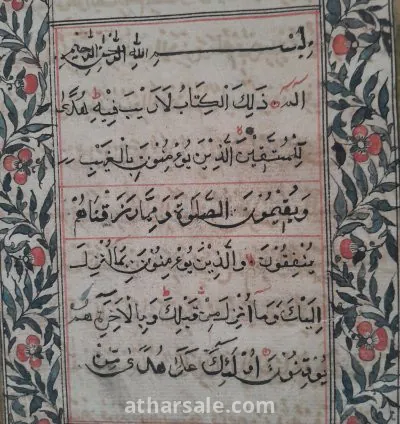 بسم الله الرحمن الرحيم
الم ذَلِكَ الْكِتَابُ لَا رَيْبَ فِيهِ هُدًى
لِلْمُتَّقِينَ الَّذِينَ يُؤْمِنُونَ بِالْغَيْبِ
وَيُقِيمُونَ الصَّلَوةَ وَمِمَّا رَزَقْنَاهُمْ
يُنْفِقُونَ وَالَّذِينَ يُؤْمِنُونَ بِمَا أُنْزِلَ
إِلَيْكَ وَمَا أُنْزِلَ مِنْ قَبْلِكَ وَبِالْآخِرَةِ هُمْ
يُوقِنُونَ أُولَئِكَ عَلَى هُدًى مِنْ
atharsale.com